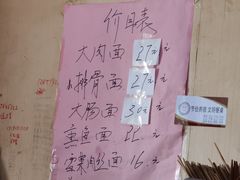 价目表
大肉面 27元
小排骨面 27元
大肠面 30元
熏鱼面 元
雪菜肉丝面 16元